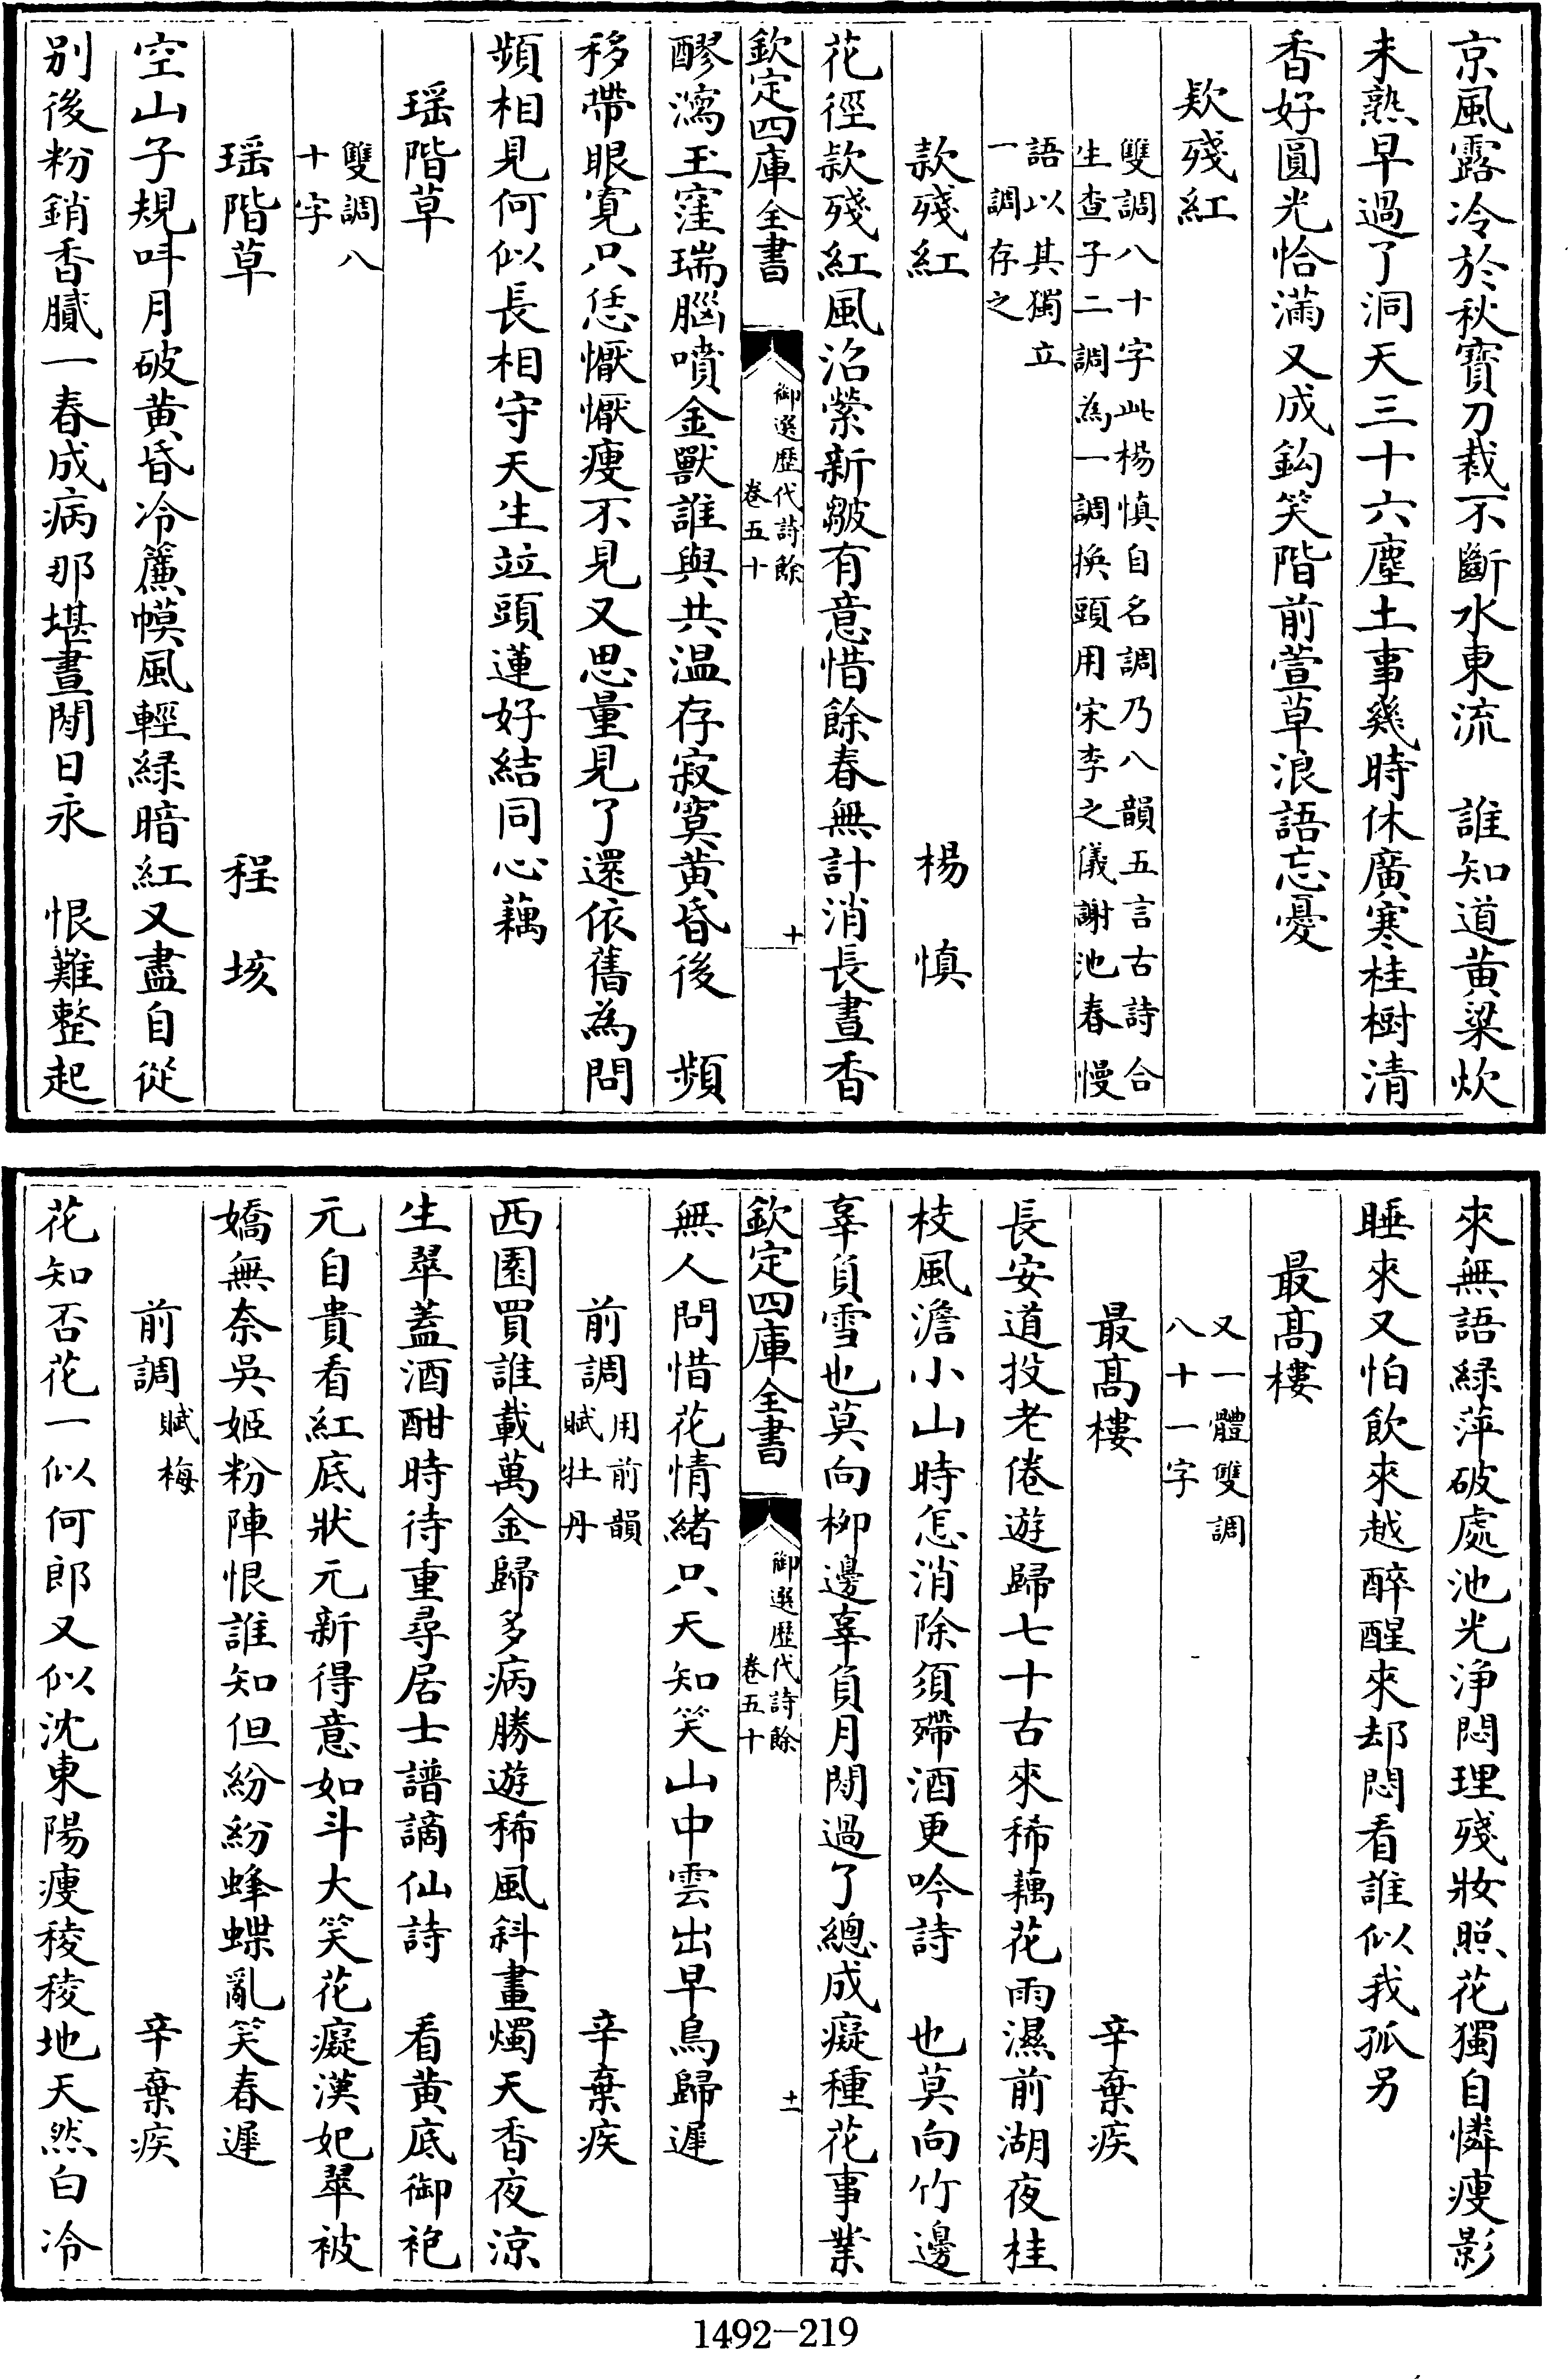 京風露冷於秋寶刀裁不斷水東流　誰知道黄粱炊
未熟早過了洞天三十六塵土事幾時休廣寒桂樹清
香好圓光恰滿又成鈎笑階前萱草浪語忘憂
欵殘紅
雙調八十字此楊慎自名調乃八韻五言古詩合
生查子二調為一調換頭用宋李之儀謝池春慢
語以其獨立
一調存之
欵殘紅　楊慎
花徑欵殘紅風沼縈新皺有意惜餘春無計消長晝香
欽定四庫全書
御選歴代詩餘
卷五十
十
醪瀉玉窪瑞腦噴金獸誰與共温存寂寞黄昏後　頻
移帶眼寛只恁懨懨瘦不見又思量見了還依舊為問
頻相見何似長相守天生竝頭蓮好結同心藕
瑶階草
雙調八
十字
瑶階草　程垓
空山子規呌月破黄昏冷簾幙風輕緑暗紅又盡自從
别後粉銷香膩一春成病那堪晝閒日永　恨難整起
來無語緑萍破處池光浄悶理殘妝照花獨自憐瘦影
睡來又怕飲來越醉醒來却悶看誰似我孤另
最髙樓
又一體雙調
八十一字
最髙樓　辛棄疾
長安道投老倦遊歸七十古來稀藕花雨濕前湖夜桂
枝風澹小山時怎消除須殢酒更吟詩　也莫向竹邊
辜負雪也莫向柳邊辜負月閒過了總成癡種花事業
欽定四庫全書
御選歴代詩餘
卷五十
十一
無人問惜花情緒只天知笑山中雲出早鳥歸遲
前調　用前韻
賦牡丹　辛棄疾
西園買誰載萬金歸多病勝遊稀風斜畫燭天香夜涼
生翠蓋酒酣時待重尋居士譜謫仙詩　看黄底御袍
元自貴看紅底狀元新得意如斗大笑花癡漢妃翠被
嬌無奈吳姬粉陣恨誰知但紛紛蜂蝶亂笑春遲
前調　賦梅　辛棄疾
花知否花一似何郎又似沈東陽瘦稜稜地天然白冷
1492-219